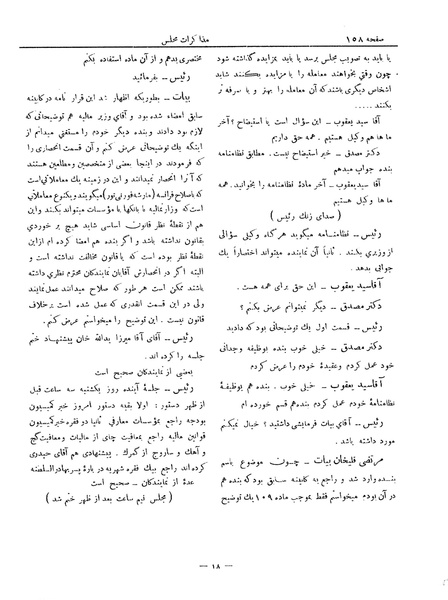 صفحه ۱۵۸
مذاکرات مجلس
یا باید به تصویب مجلس برسد یا باید بمزایده گذاشته شود
چون وقتی بخواهند معامله را با مزایده بکنند شاید
اشخاص دیگری باشند که آن معامله را بهتر و با صرفه تر
بکنند ....
آقا سید یعقوب ـ این سؤال است یا استیضاح؟ آخر
ما ها هم وکیل هستیم. همه حق داریم
دکتر مصدق ـ خیر استیضاح نیست. مطابق نظامنامه
بنده جواب میدهم
آقا سید یعقوب ـ آخر مادهٔ نظامنامه را بخوانید. همه
ما ها وکیل هستیم
(صدای زنگ رئیس)
رئیس ـ نظامنامه میگوید هر گاه وکیل سؤالی
از وزیری بکند. ثانیاً آن نماینده میتواند اختصاراً یک
جوابی بدهد.
آقا سید یعقوب ـ این حق برای همه هست.
دکتر مصدق ـ دیگر نمیتوانم عرض بکنم؟
رئیس ـ قسمت اول یک توضیحاتی بود که دادید
دکتر مصدق ـ خیلی خوب بنده بوظیفه وجدانی
خود عمل کردم و عقیدهٔ خودم را عرض کردم
آقا سید یعقوب ـ خیلی خوب. بنده هم بوظیفهٔ
نظامنامهٔ خودم عمل کردم بنده هم قسم خورده ام
رئیس ـ آقای بیات فرمایشی داشتید؟ خیال نمیکنم
مورد داشته باشد.
مرتضی قلیخان بیات ـ چون موضوع باسم
بنده وارد شد و راجع به کابینه سابق بود که بنده هم
در آن بودم میخواستم فقط بموجب ماده ۱۰۹ یک توضیح
مختصری بدهم و از آن ماده استفاده بکنم
رئیس ـ بفرمائید
بیات ـ بطوریکه اظهار شد این قرار نامه در کابینه
سابق امضاء شده بود و آقای وزیر مالیه هم توضیحاتی که
لازم بود دادند و بنده دیگر خودم را مستغنی میدانم از
اینکه یک توضیحاتی عرض کنم و آن قسمت انحصاری را
که فرمودند در اینجا بعضی از متخصصین و مطلعین هستند
که آنرا انحصار نمیدانند و این در زمینه یک معاملاتی است
که وزارت مالیه با بانکها یا مؤسسات میتواند بکند و این
هم از نقطهٔ نظر قانون اساسی شاید هیچ بر خوردی
بقانون نداشته باشد و اگر بنده هم امضا کرده ام از این
نقطهٔ نظر بوده است که با قانون مخالفت نداشته است و
البته اگر در انحصارش آقایان نمایندگان محترم نظری داشته
باشند ممکن است هر طور که صلاح میدانند عمل نمایند
ولی در این قسمت آنقدری که عمل شده است بر خلاف
قانون نیست. این توضیح را میخواستم عرض کنم.
رئیس ـ آقای آقا میرزا یدالله خان پیشنهاد ختم
جلسه را کرده اند.
بعضی از نمایندگان صحیح است
رئیس ـ جلسهٔ آینده روز یکشنبه سه ساعت قبل
از ظهر دستور: اولا بقیه دستور امروز خبر کمیسیون
بودجه راجع بمؤسسات معارفی ثانیا دو فقره خبر کمیسیون
قوانین مالیه راجع بمعافیت چای از مالیات و معافیت گچ
و آهک و ساروج از گمرک. پیشنهادی هم آقای حیدری
کرده اند راجع بیک فقره شهریه در بارهٔ پسر بهادر السلطنه
عدهٔ از نمایندگان ـ صحیح است
(مجلس نیم ساعت بعد از ظهر ختم شد)
— ۱۸ —